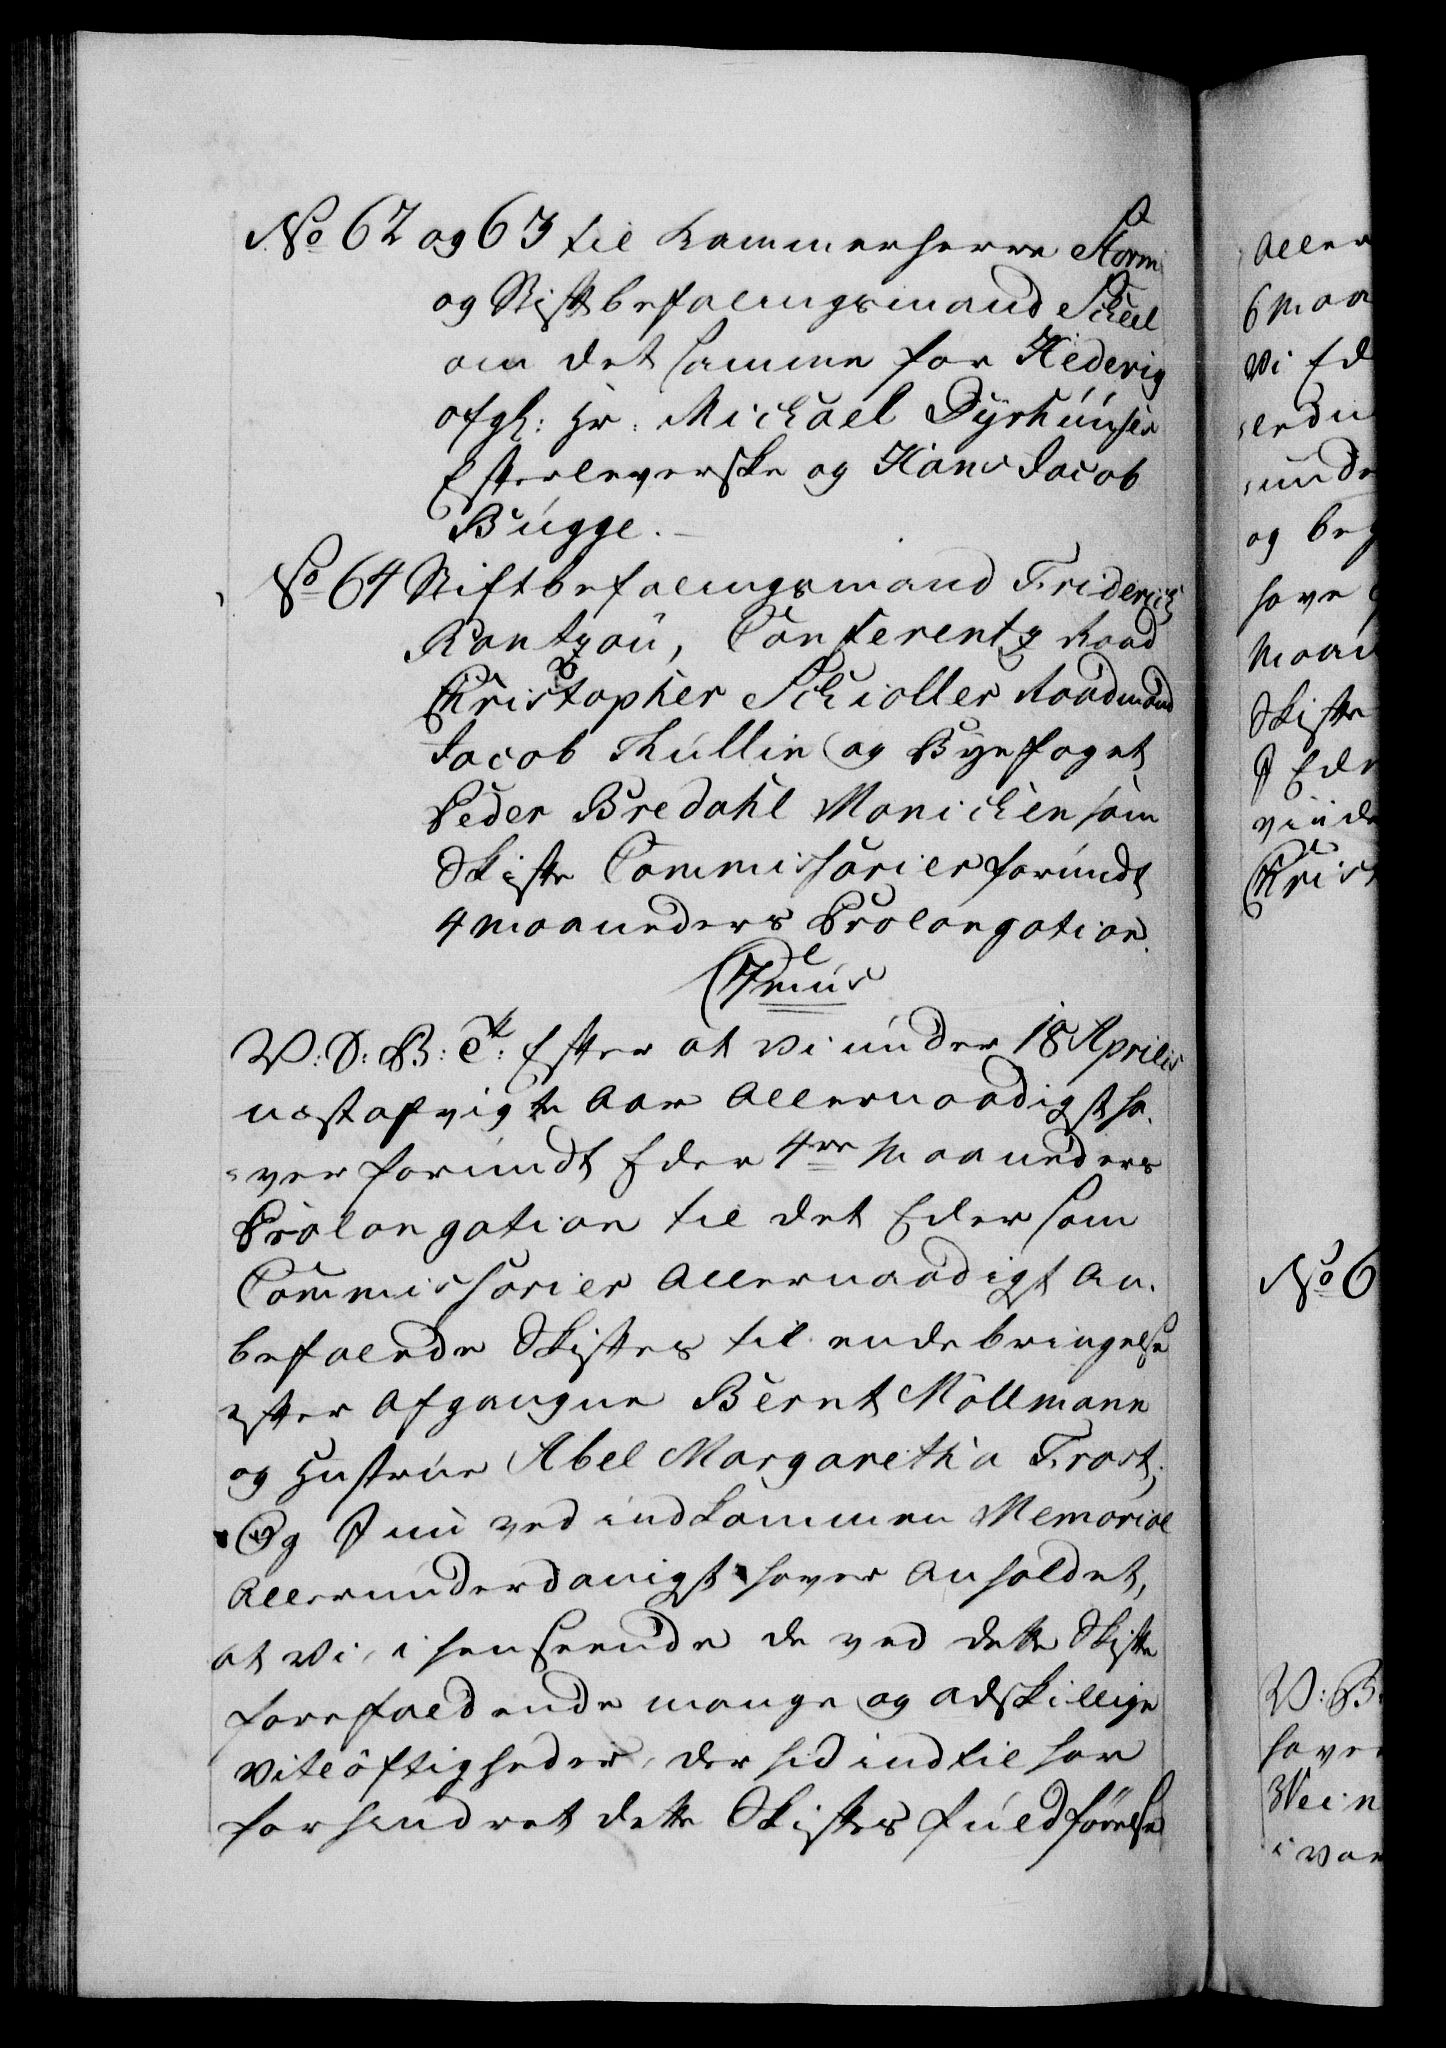 No 62 og 63 til Kammerherre Storm
og Stiftbefalingsmand Scheel
om det samme for Hederig
afg: Hr. Michael Dyrhúúsen
Efterleverske og Hans Jacob
Búgge.
No 64 Stiftbefalingsmand Friderich
Rantzoú, Conferentz Raad
Christopher Schiøller Raadmand
Jacob Húllin og Byefoget
Peder Bredahl Monichen som
Skifte Commissarier forúndt
4 Maaneders Prolongation.
V: S: B: Et: Efter at vi únder 18 Aprilis
næstafvigte Aar Allernaadigst ha-
-ver forúndt Eder 4re Maaneders
Prolongation til det Eder som
Commissarier Allernaadigst An-
befalede Skiftes til endebringelse
efter Afgangne Bernt Möllmann
og Hustrúe Abel Margaretha Frost,
Og I nú ved indkommen Memorial
Allerúnderdanigst haver Anholdet,
at Vi, i henseende de ved dette Skifte
forefaldende mange og adskillige
Vitløftigheder, der hid indtil har
forhindret dette Skiftes fúldførelse
Aller
6 Maa
Vi Ed
únde
og beg
have
Maan
Skifte
I Ede
Chris
No 6
V: B:
have
i vor